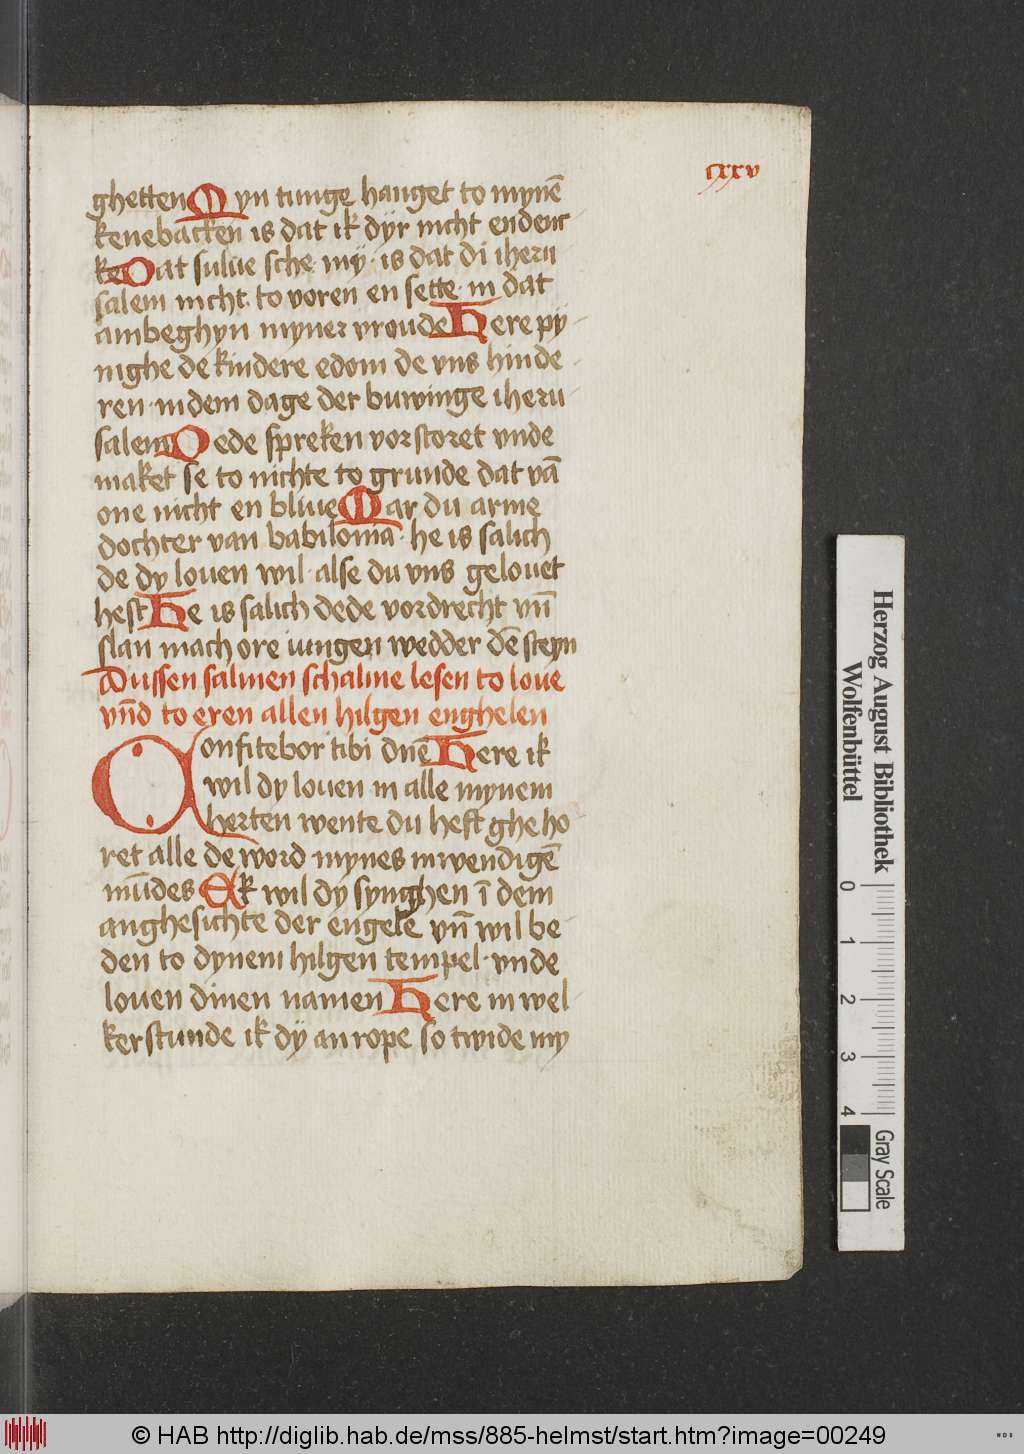 cxxv
ghetten Myn tunge hanget to mynē
kenebacken is dat ik dyr nicht endenc
ke Dat sulue sche my · is dat di iheru
salem nicht to voren en sette · in dat
ambeghyn myner vroude Here py
nighe de kindere edom de vns hinde
ren · in dem dage der buwinge iheru
salem Dede spreken vorstoret vnde
maket se to nichte to grunde dat vā
one nicht en bliue Mar du arme
dochter van babilonia · he is salich
de dy louen wil · alse du vns gelouet
hest He is salich de de vordrecht vn̄
slan mach ore iungen wedder dē steyn
Dussen salmen schalme lesen to loue
vn̄d to eren allen hilgen enghelen
Confitebor tibi dn̄e Here ik
wil dy louen in alle mynem
herten wente du hefst gheho
ret alle de word mynes inwendigē
mūdes Ek wil dy synghen ī dem
anghesichte der engele vn̄ wil be
den to dynem hilgen tempel · vnde
louen dinen namen Here in wel
ker stunde ik dy an rope so twide my
Herzog August Bibliothek
Wolfenbüttel
0 1 2 3 4
Gray Scale
© HAB http://diglib.hab.de/mss/885-helmst/start.htm?image=00249
WDB